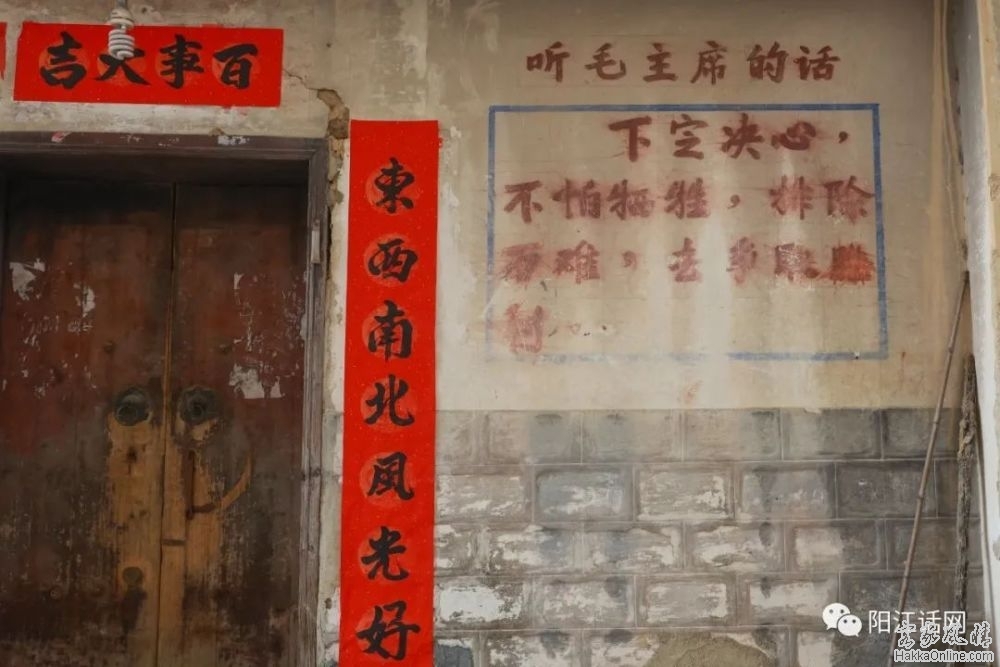 百事大吉
東西南北風光好
听毛主席的话
下定决心，
不怕牺牲，排除
万难，去争取胜
利
阳江话网
客家风情
HakkaOnline.com